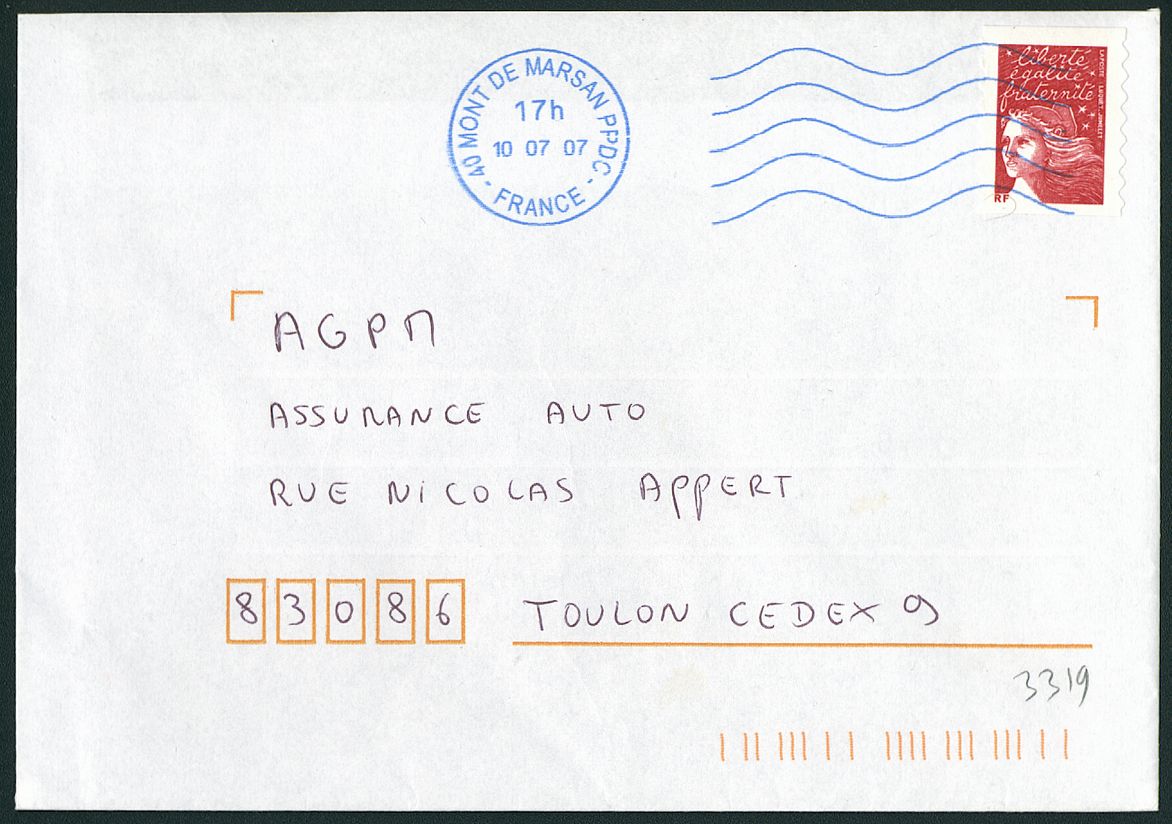 40 MONT DE MARSAN PPDC
17h
10 07 07
- FRANCE -
liberté
égalité
fraternité
LA POSTE LUQUET-JUMELET
RF
AGPM
ASSURANCE AUTO
RUE NICOLAS APPERT
83086 TOULON CEDEX 9
3319